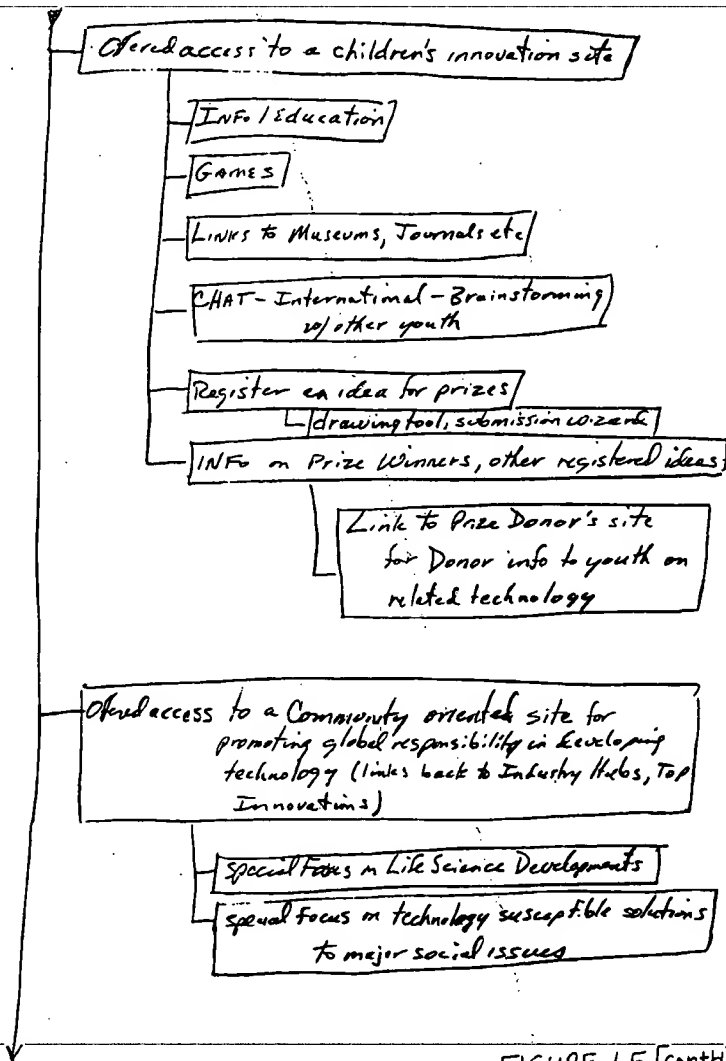 Offered access to a children's innovation site
INFO / Education
GAMES
LINKS to Museums, Journals etc
CHAT - International - Brainstorming
w/ other youth
Register an idea for prizes
drawing tool, submission wizard
INFO on Prize Winners, other registered ideas
Link to Prize Donor's site
for Donor info to youth on
related technology
Offered access to a Community oriented site for
promoting global responsibility in developing
technology (links back to Industry Hubs, Top
Innovations)
special Focus on Life Science Developments
special Focus on technology susceptible solutions
to major social issues
FIGURE 1F